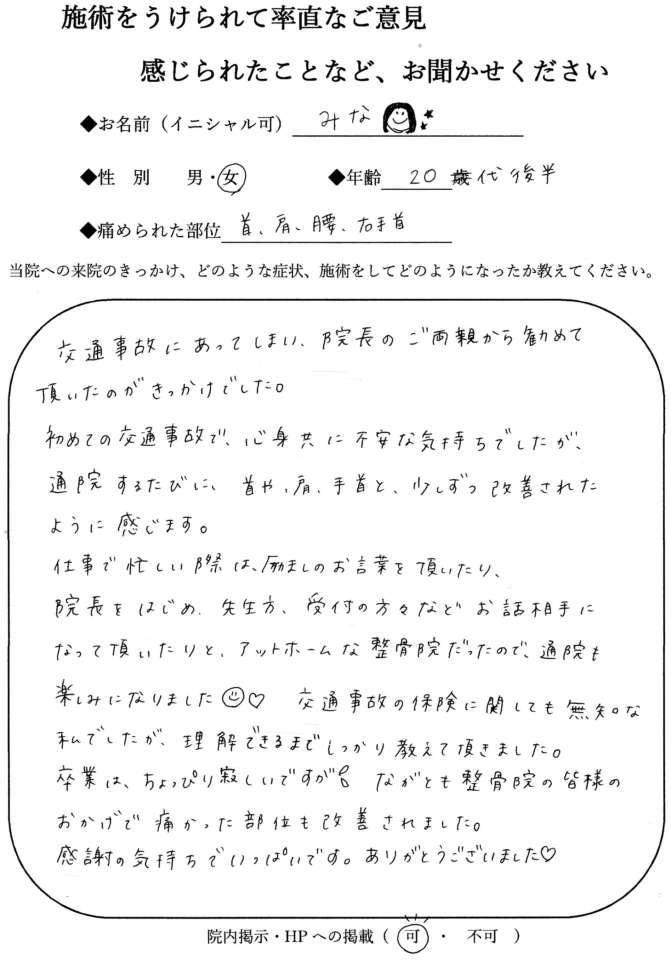 施術をうけられて率直なご意見
感じられたことなど、お聞かせください
◆お名前（イニシャル可） みな
◆性 別 男・女 ◆年齢 20歳代後半
◆痛められた部位 首、肩、腰、右手首
当院への来院のきっかけ、どのような症状、施術をしてどのようになったか教えてください。
交通事故にあってしまい、院長のご両親から勧めて
頂いたのがきっかけでした。
初めての交通事故で、心身共に不安な気持ちでしたが、
通院するたびに、首や、肩、手首と、少しずつ改善された
ように感じます。
仕事で忙しい際は、励ましのお言葉を頂いたり、
院長をはじめ、先生方、受付の方々などお話相手に
なって頂いたりと、アットホームな整骨院だったので、通院も
楽しみになりました☺♡ 交通事故の保険に関しても無知な
私でしたが、理解できるまでしっかり教えて頂きました。
卒業は、ちょっぴり寂しいですが ながとも整骨院の皆様の
おかげで痛かった部位も改善されました。
感謝の気持ちでいっぱいです。ありがとうございました♡
院内掲示・HPへの掲載（ 可 ・ 不可 ）